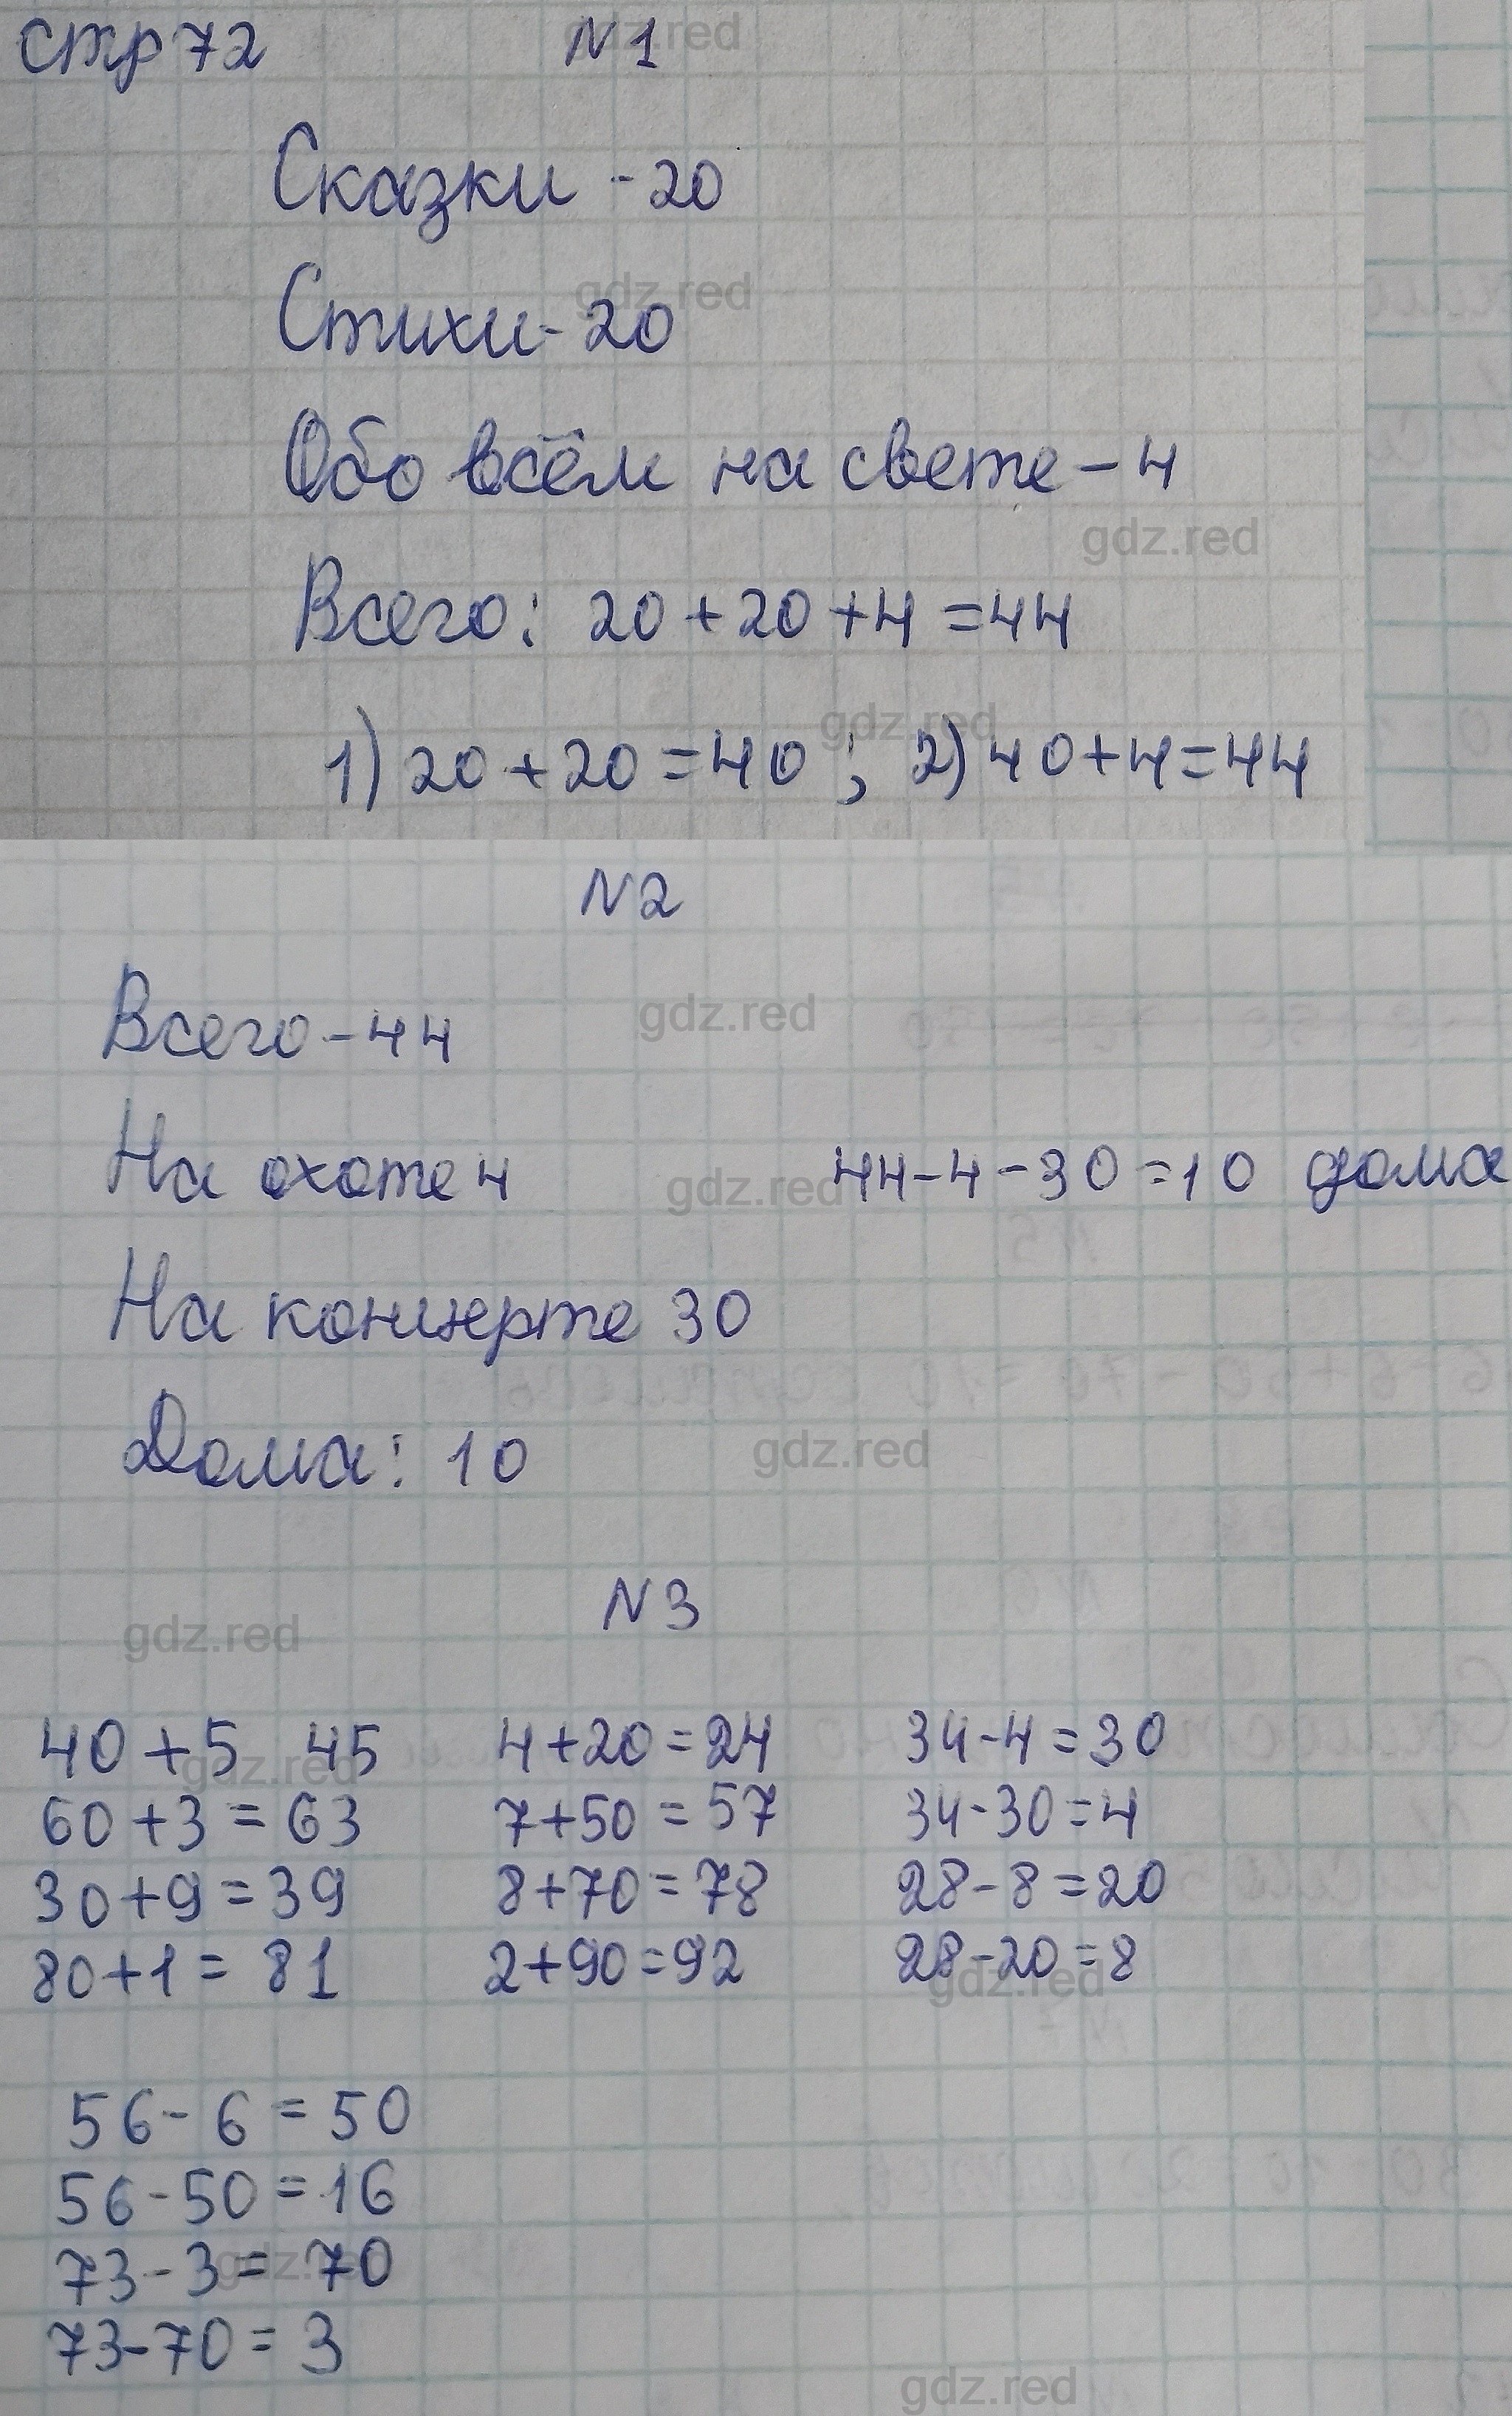 стр 72 N1
Сказки - 20
Стихи - 20
Обо всём на свете - 4
Всего: 20 + 20 + 4 = 44
1) 20 + 20 = 40 ; 2) 40 + 4 = 44
N2
Всего - 44
На охоте 4 44 - 4 - 30 = 10 дома
На концерте 30
Дома: 10
N3
40 + 5 45 4 + 20 = 24 34 - 4 = 30
60 + 3 = 63 7 + 50 = 57 34 - 30 = 4
30 + 9 = 39 8 + 70 = 78 28 - 8 = 20
80 + 1 = 81 2 + 90 = 92 28 - 20 = 8
56 - 6 = 50
56 - 50 = 16
73 - 3 = 70
73 - 70 = 3
gdz.red
gdz.red
gdz.red
gdz.red
gdz.red
gdz.red
gdz.red
gdz.red
gdz.red
gdz.red
gdz.red
gdz.red